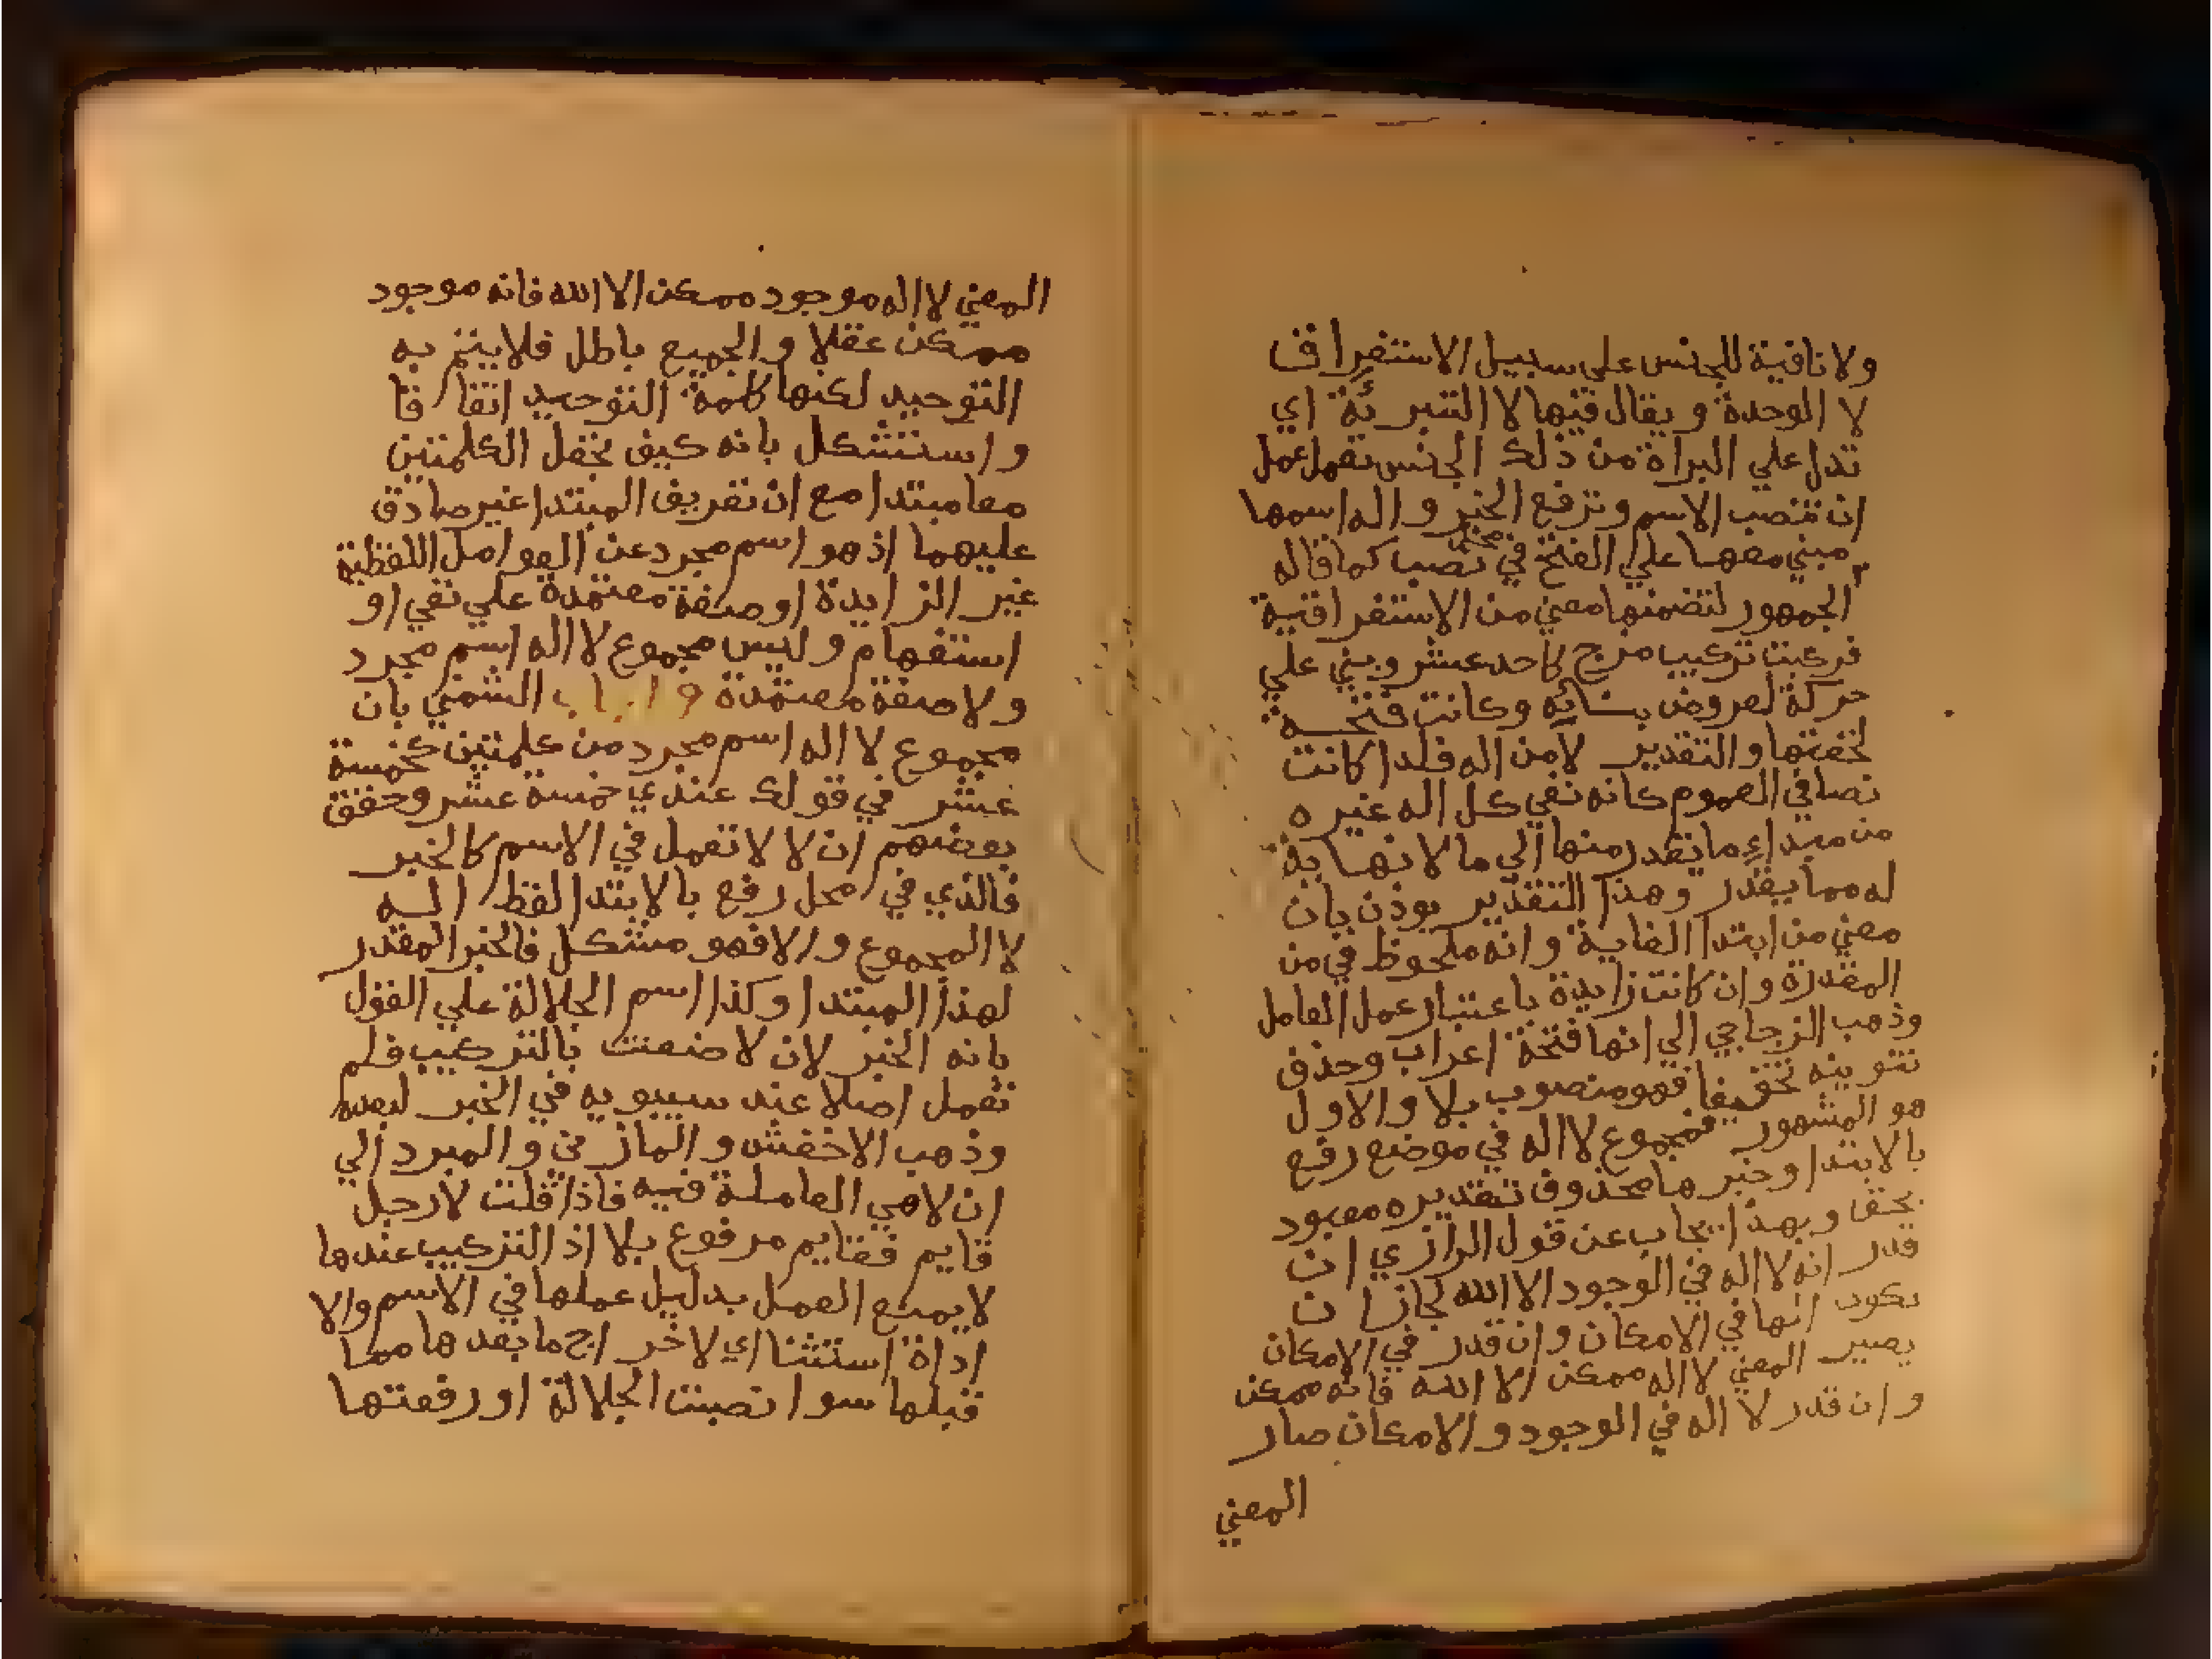 ولا نافية للجنس علي سبيل الاستغراق
لا الوحدة ويقال فيها لا التبرئة اي
تدل علي البراة من ذلك الجنس تعمل عمل
ان تنصب الاسم وترفع الخبر واله اسمها
مبني معها علي الفتح في محل نصب كما قاله
الجمهور لتضمنها معني من الاستغراقية
فركبت تركيب مزج كاحد عشر وبني علي
حركة لعروض بنائه وكانت فتحة
لخفتها والتقدير لا من اله فلذا كانت
نصا في العموم كانه نفي كل اله غيره
من مبداء ما يقدر منها الي ما لا نهاية
له مما يقدر وهذا التقدير يوذن بان
معني من ابتدا الغاية وانه ملحوظ في من
المقدرة وان كانت زايدة باعتبار عمل العامل
وذهب الزجاجي الي انها فتحة اعراب وحذف
تنوينه تخفيفا فهو منصوب بلا والاول
هو المشهور فمجموع لا اله في موضع رفع
بالابتدا وخبرها محذوف تقديره معبود
بحق وبهذا يجاب عن قول الرازي ان
قدر انه لا اله في الوجود الا الله لجاز ان
يكون الها في الامكان وان قدر في الامكان
يصير المعني لا اله ممكن الا الله فانه ممكن
وان قدر لا اله في الوجود والامكان صار
المعني
المعني لا اله موجود ممكن الا الله فانه موجود
ممكن عقلا والجميع باطل فلا يتم به
التوحيد لكنها كلمة التوحيد اتفاقا
واستشكل بانه كيف تجعل الكلمتين
معا مبتدا مع ان تعريف المبتدا غير صادق
عليهما اذ هو اسم مجرد عن العوامل اللفظية
غير الزايدة او صفة معتمدة علي نفي او
استفهام وليس مجموع لا اله اسم مجرد
ولا صفة معتمدة واجاب الشمني بان
مجموع لا اله اسم مجرد من كلمتين كخمسة
عشر في قولك عندي خمسة عشر وحقق
بعضهم ان لا لا تعمل في الاسم كالخبر
فالذي في محل رفع بالابتدا لفظ اله
لا المجموع والا فهو مشكل فالخبر المقدر
لهذا المبتدا وكذا اسم الجلالة علي القول
بانه الخبر لان لا ضعفت بالتركيب فلم
تعمل اصلا عند سيبويه في الخبر لبعده
وذهب الاخفش والمازني والمبرد الي
ان لا هي العاملة فيه فاذا قلت لا رجل
قايم فقايم مرفوع بلا اذ التركيب عندها
لا يمنع العمل بدليل عملها في الاسم والا
اداة استثنا اي لاخراج ما بعدها مما
قبلها سوا نصبت الجلالة او رفعتها